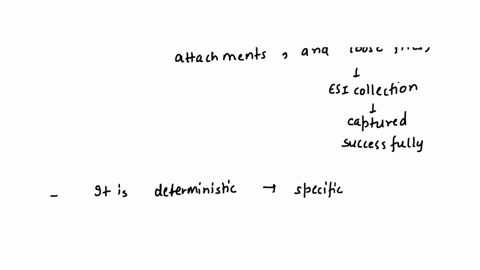 attachments, and loose files
↓
ESI collection
↓
captured
successfully
- It is deterministic → specific